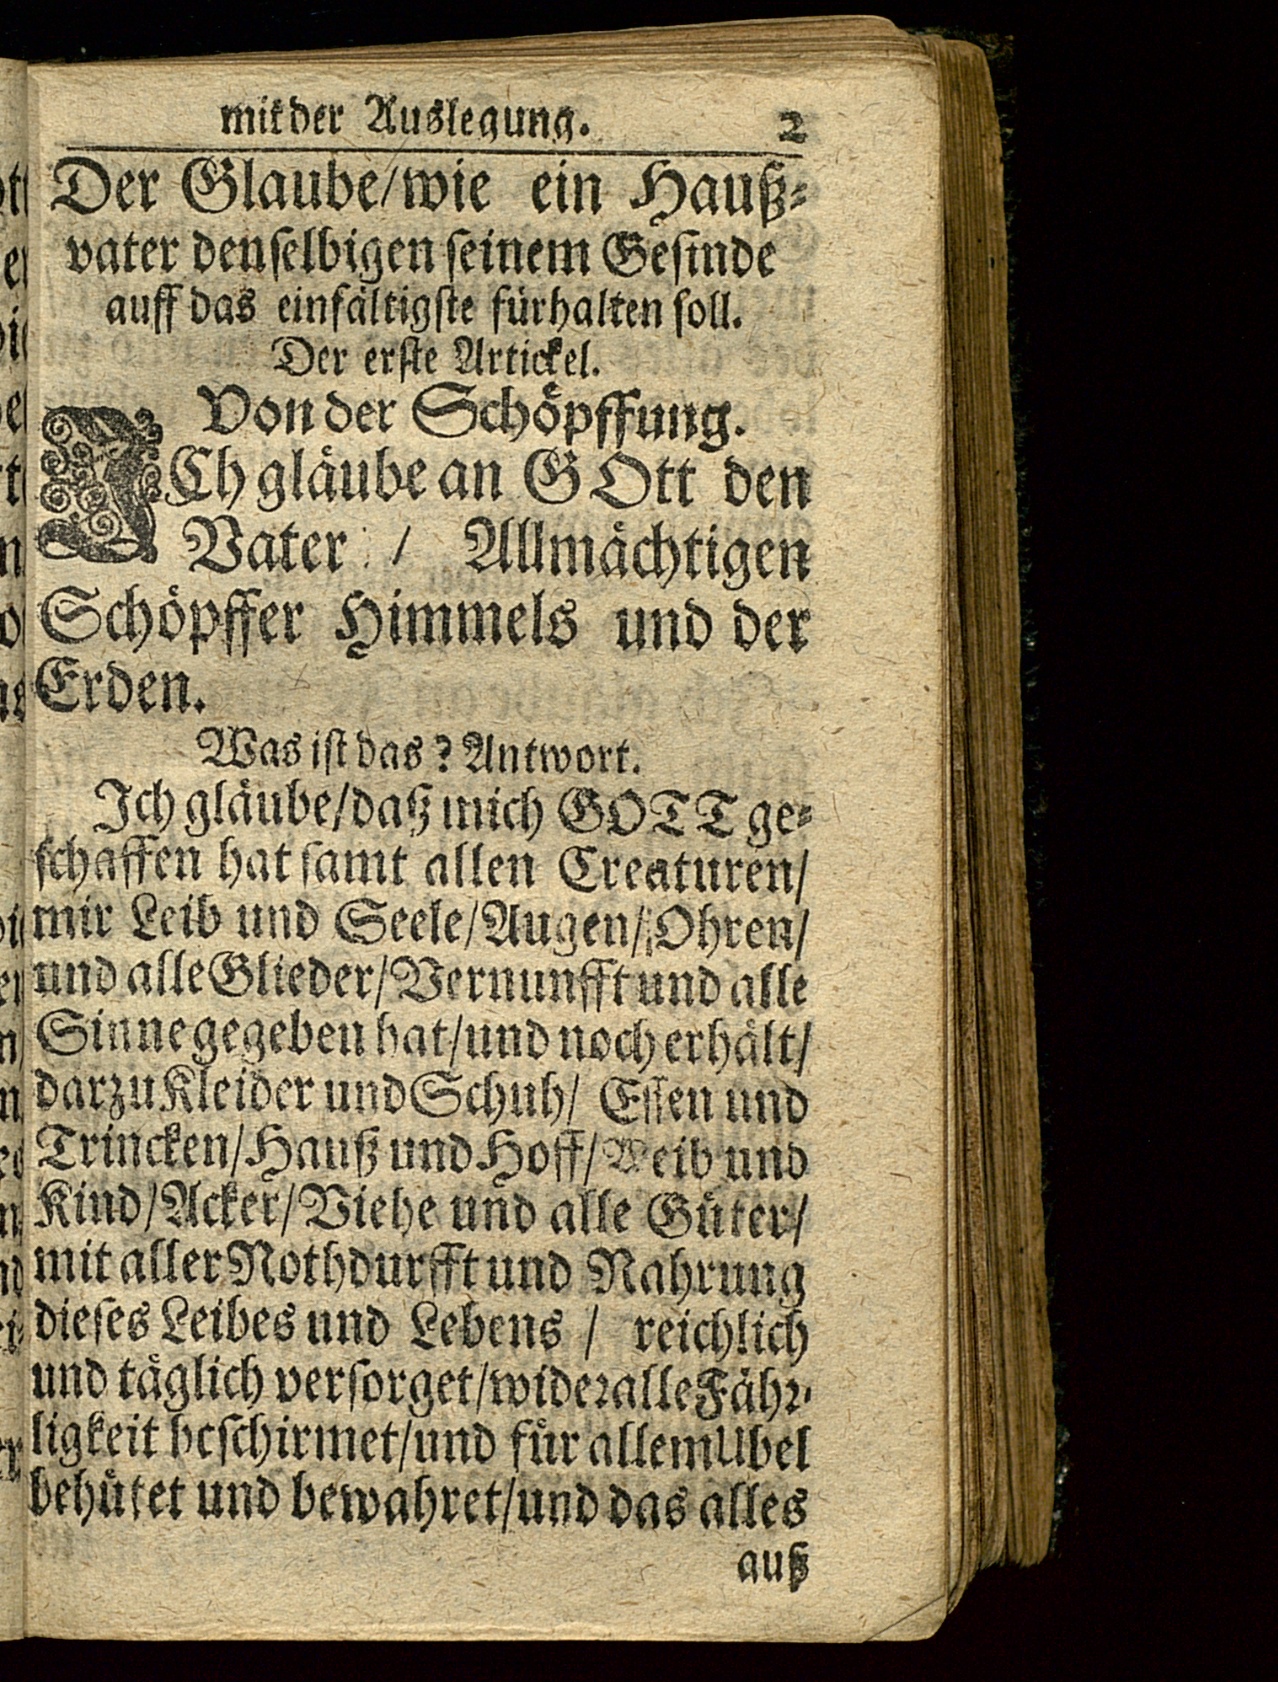 mit der Auslegung. 2
Der Glaube/wie ein Hauß⸗
vater denselbigen seinem Gesinde
auff das einfältigste fürhalten soll.
Der erste Artickel.
Von der Schöpffung.
ICh gläube an GOtt den
Vater / Allmächtigen
Schöpffer Himmels und der
Erden.
Was ist das? Antwort.
Ich gläube/daß mich GOTT ge⸗
schaffen hat samt allen Creaturen/
mir Leib und Seele/Augen/Ohren/
und alle Glieder/Vernunfft und alle
Sinne gegeben hat/und noch erhält/
darzu Kleider und Schuh/ Essen und
Trincken/Hauß und Hoff/Weib und
Kind/Acker/Viehe und alle Güter/
mit aller Nothdurfft und Nahrung
dieses Leibes und Lebens / reichlich
und täglich versorget/wider alle Fähr⸗
ligkeit beschirmet/und für allem Ubel
behütet und bewahret/und das alles
auß